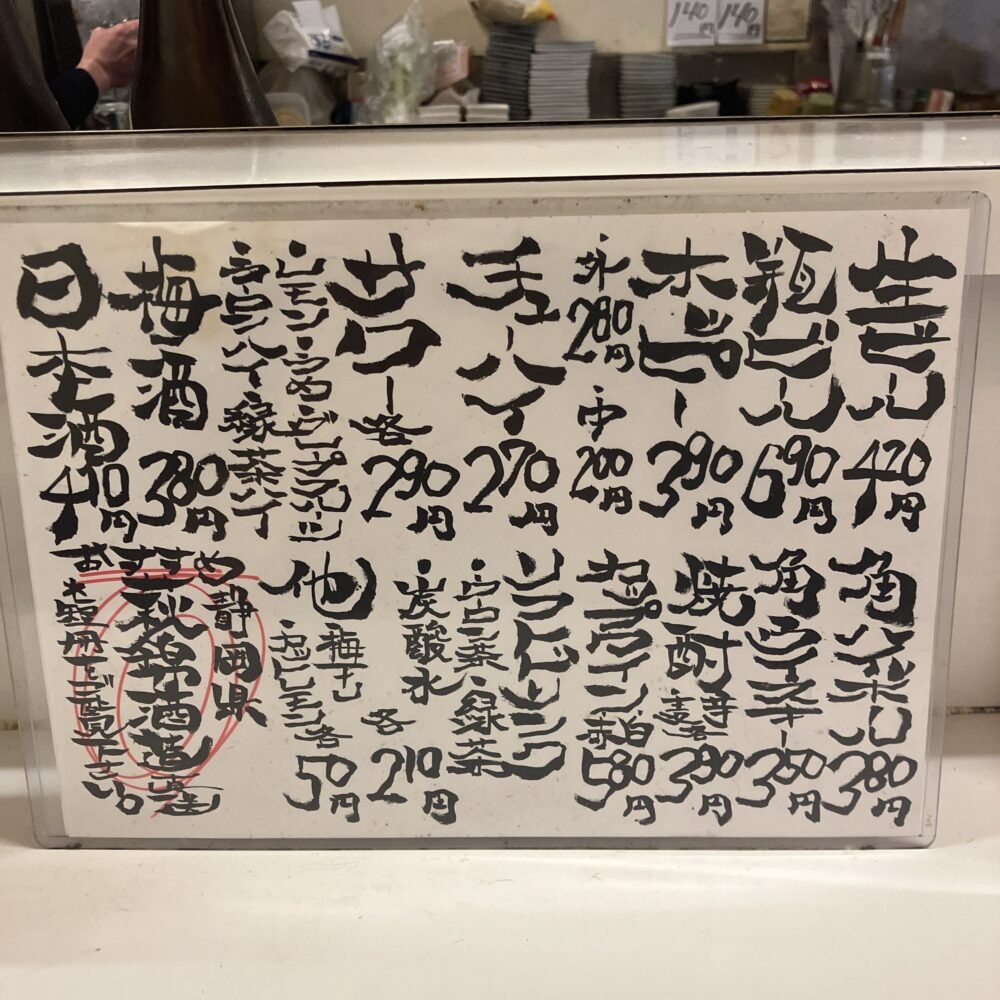 140円
140円
生ビール 420円
瓶ビール 690円
ホッピー 390円
外280円 中200円
チューハイ 270円
サワー各 290円
レモン・うめ・グレープフルーツ
ウーロンハイ・緑茶ハイ
梅酒 380円
日本酒 410円
角ハイボール 380円
角ウイスキー 350円
焼酎 芋 麦 各 390円
カップワイン 赤 白 580円
ソフトドリンク
ウーロン茶・緑茶
炭酸水 各 210円
他 梅干し
カットレモン各 50円
おすすめ
静岡県
萩錦酒造直送
短冊をご覧下さい